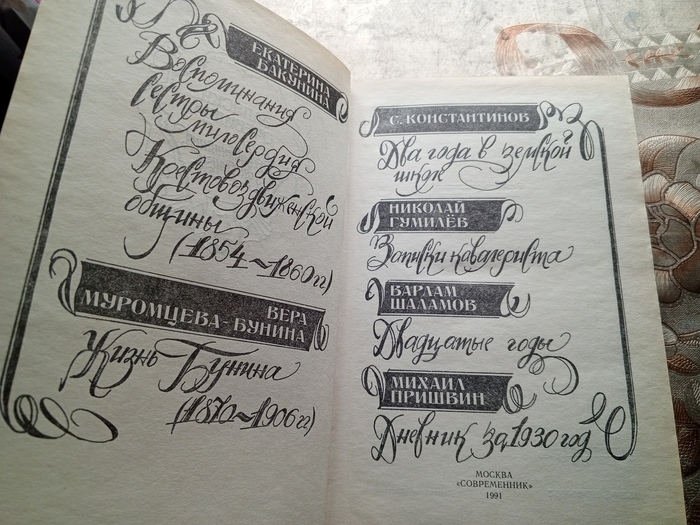 ЕКАТЕРИНА
БАКУНИНА
Воспоминания
сестры
милосердия
Крестовоздвиженской
общины
(1854~1860гг)
ВЕРА
МУРОМЦЕВА-БУНИНА
Жизнь Бунина
(1870~1906гг)
С. КОНСТАНТИНОВ
Два года в земской
школе
НИКОЛАЙ
ГУМИЛЁВ
Записки кавалериста
ВАРЛАМ
ШАЛАМОВ
Двадцатые годы
МИХАИЛ
ПРИШВИН
Дневник за 1930 год
МОСКВА
«СОВРЕМЕННИК»
1991